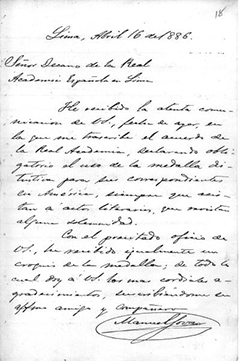 18
Lima, Abril 16 de 1886.
Señor Decano de la Real
Academia Española en Lima
He recibido la atenta comu-
nicacion de US., fecha de ayer, en
la que me trascribe el acuerdo de
la Real Academia, declarando obli-
gatorio el uso de la medalla dis-
tintiva para sus correspondientes
en América, siempre que asis-
tan a actos literarios, que revistan
alguna solemnidad.
Con el precitado oficio de
US., he recibido igualmente un
croquis de la medalla; de todo lo
cual doy á US. las mas cordiales a-
gradecimientos, suscribiéndome su
affmo amigo y compañero
Manuel